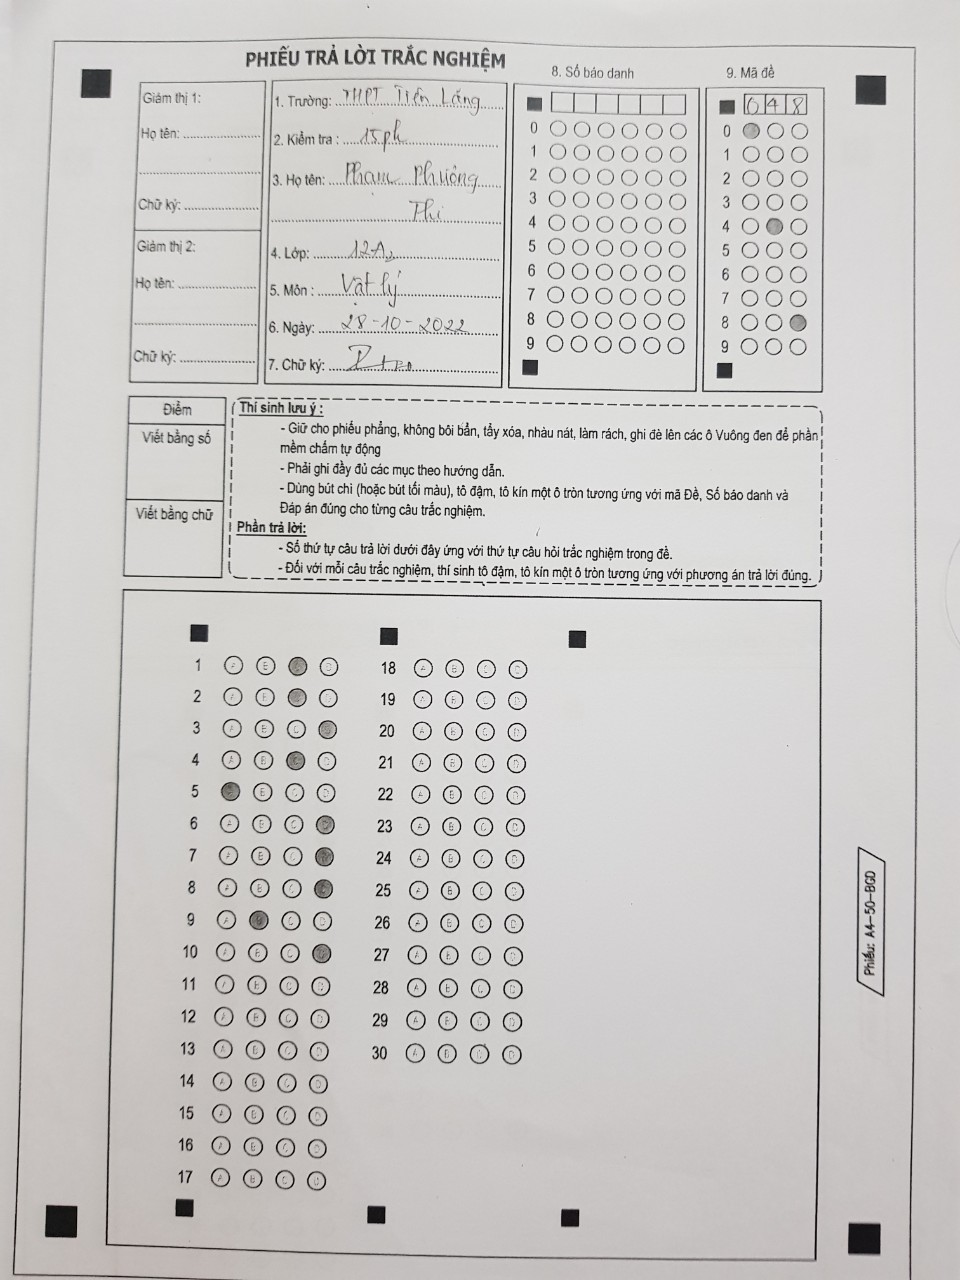 PHIẾU TRẢ LỜI TRẮC NGHIỆM
Giám thị 1:
Họ tên:
Chữ ký:
Giám thị 2:
Họ tên:
Chữ ký:
1. Trường: THPT Tiên Lãng
2. Kiểm tra : 15ph
3. Họ tên: Phạm Phương
Thi
4. Lớp: 12A
5. Môn : Vật lý
6. Ngày: 28-10-2022
7. Chữ ký:
8. Số báo danh
0
1
2
3
4
5
6
7
8
9
9. Mã đề
0 4 8
0
1
2
3
4
5
6
7
8
9
Điểm
Viết bằng số
Viết bằng chữ
Thí sinh lưu ý :
- Giữ cho phiếu phẳng, không bôi bẩn, tẩy xóa, nhàu nát, làm rách, ghi đè lên các ô Vuông đen để phần
mềm chấm tự động
- Phải ghi đầy đủ các mục theo hướng dẫn.
- Dùng bút chì (hoặc bút tối màu), tô đậm, tô kín một ô tròn tương ứng với mã Đề, Số báo danh và
Đáp án đúng cho từng câu trắc nghiệm.
Phần trả lời:
- Số thứ tự câu trả lời dưới đây ứng với thứ tự câu hỏi trắc nghiệm trong đề.
- Đối với mỗi câu trắc nghiệm, thí sinh tô đậm, tô kín một ô tròn tương ứng với phương án trả lời đúng.
1 A B D
2 A B D
3 A B C
4 A B D
5 B C D
6 A B C
7 A B C
8 A B C
9 A C D
10 A B C
11 A B C D
12 A B C D
13 A B C D
14 A B C D
15 A B C D
16 A B C D
17 A B C D
18 A B C D
19 A B C D
20 A B C D
21 A B C D
22 A B C D
23 A B C D
24 A B C D
25 A B C D
26 A B C D
27 A B C D
28 A B C D
29 A B C D
30 A B C D
Phiếu: A4-50-BGD